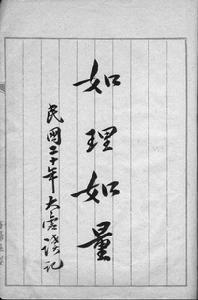 如理如量
民國二十年太虛謹記